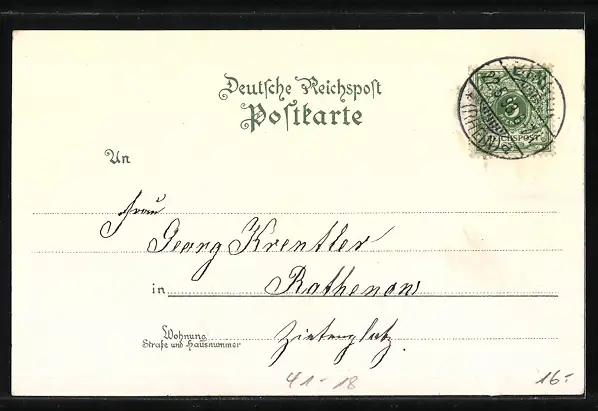 Deutsche Reichspost
Postkarte
An
Frau
Georg Krentler
in Rathenow
Wohnung
Straße und Hausnummer
Zietenplatz.
5
REICHSPOST
41-18
16.-